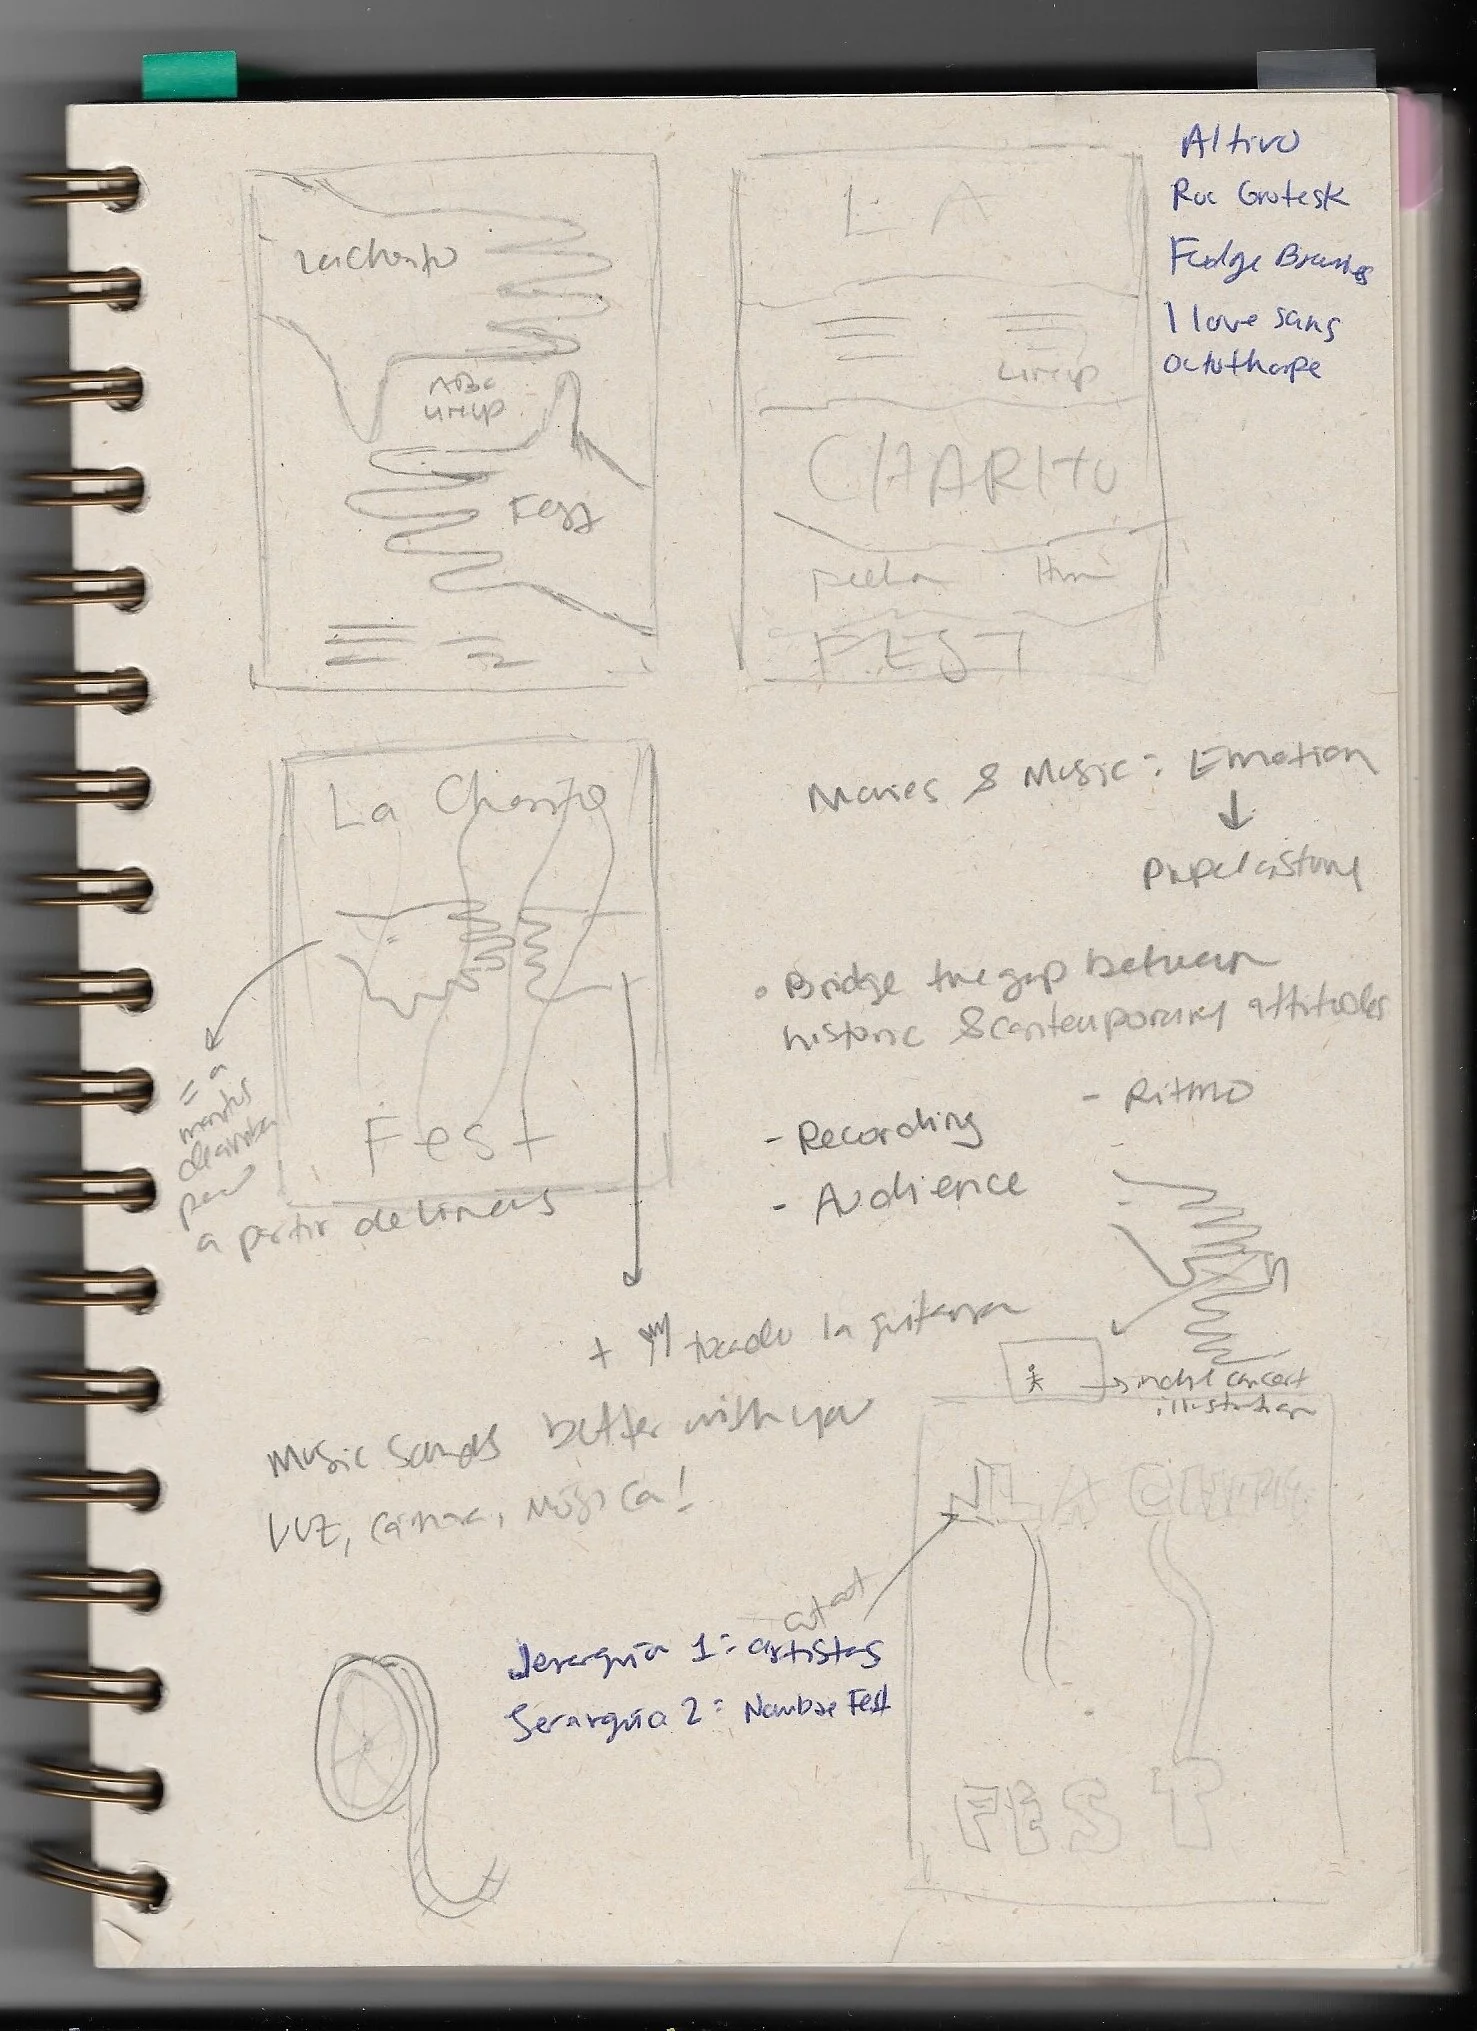 Altivo
Roc Grotesk
Fudge Brownies
I love sans
octothorpe
La Charito
Lineup
Fest
L A
Lineup
CHARITO
Fecha
FEST
La Charito
Fest
= a
manos
a partir de lineas
Movies & Music: Emotion
↓
Papel
• Bridge the gap between
historic & contemporary attitudes
- Recording
- Ritmo
- Audience
+ tocado la guitarra
→ concert
illustration
Music sounds better with you
LUZ, camara, música!
LA CHARI
cut out
Jerarquía 1: artistas
Jerarquía 2: Nombre Fest
FEST